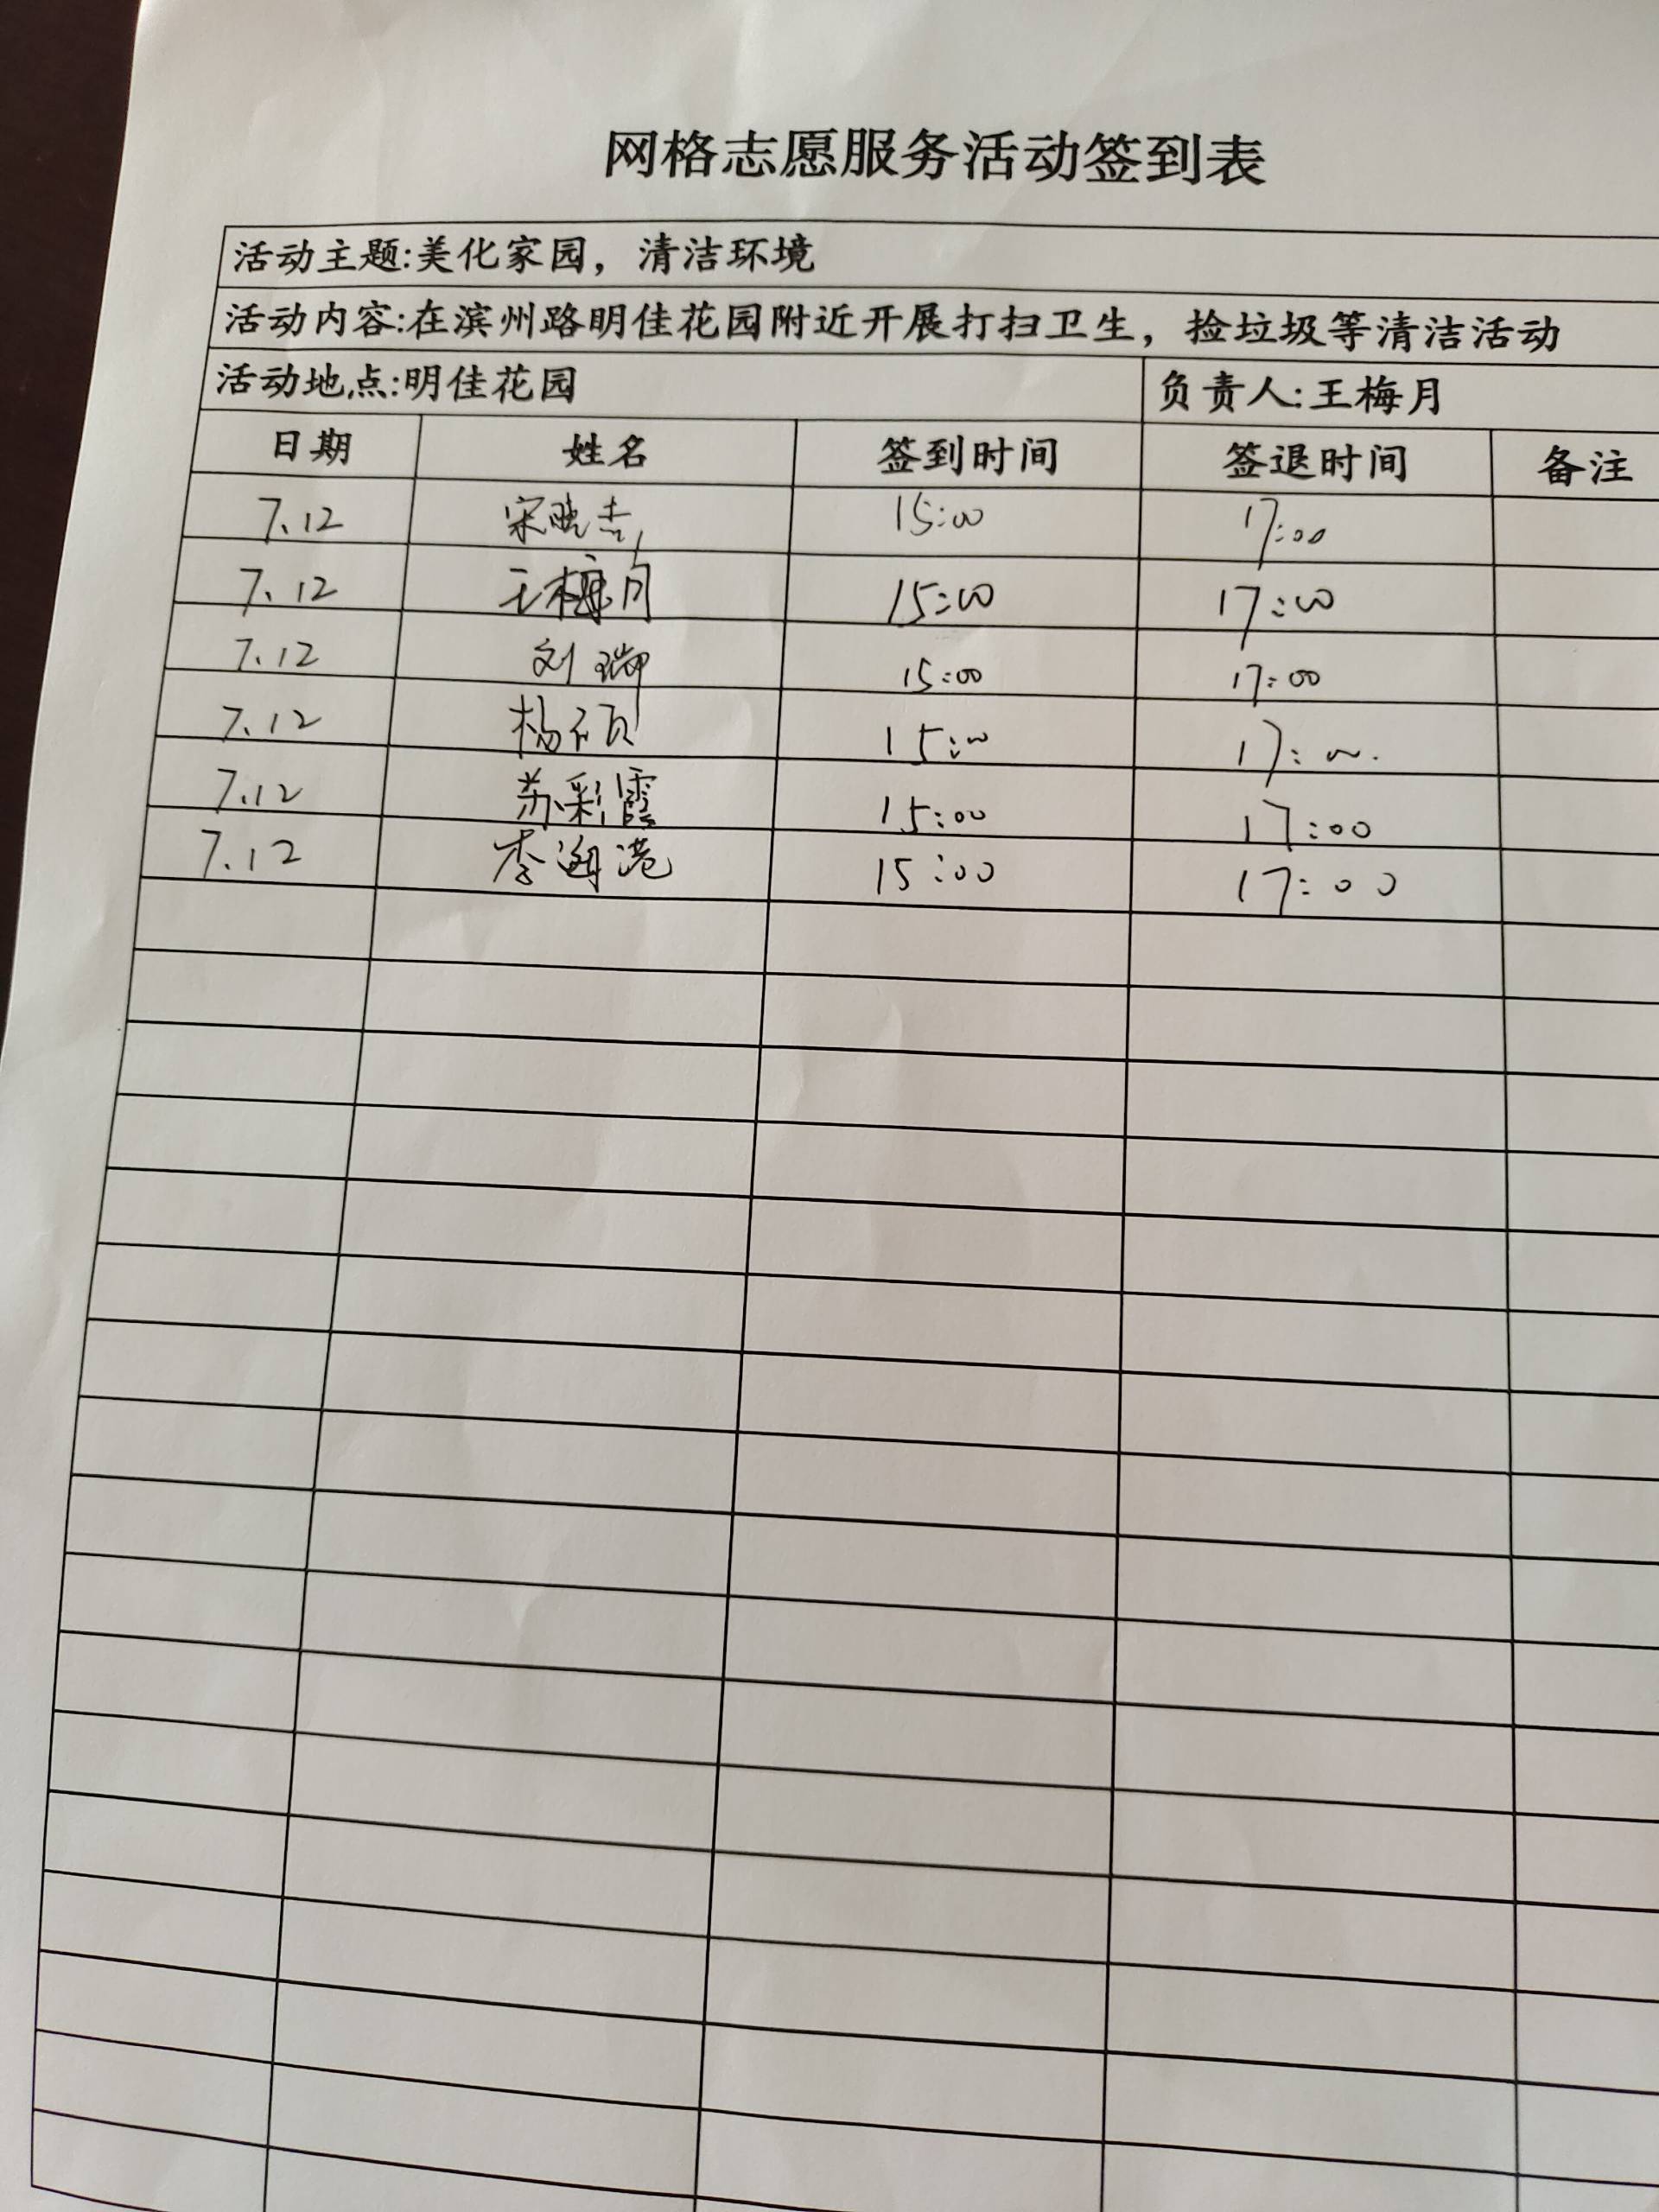 网格志愿服务活动签到表
活动主题:美化家园，清洁环境
活动内容:在滨州路明佳花园附近开展打扫卫生，捡垃圾等清洁活动
活动地点:明佳花园 负责人:王梅月
日期 姓名 签到时间 签退时间 备注
7.12 宋晓 15:00 17:00
7.12 王梅月 15:00 17:00
7.12 刘瑞 15:00 17:00
7.12 杨硕 15:00 17:00.
7.12 苏彩霞 15:00 17:00
7.12 李海港 15:00 17:00